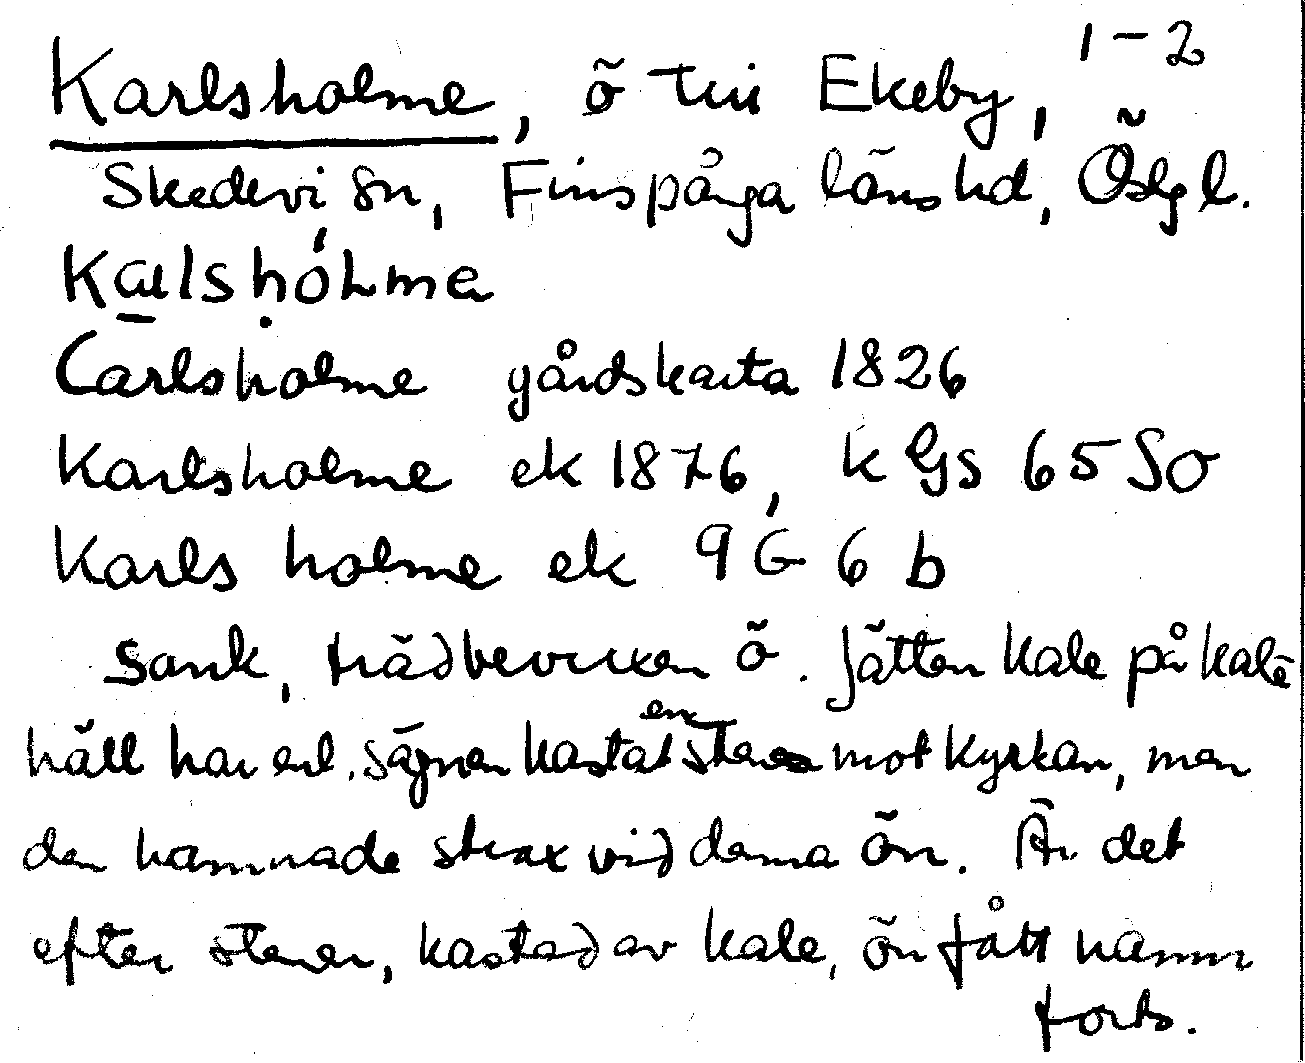 1-2
Karlsholme, ö till Ekeby,
Skedevi sn, Finspånga läns hd, Östg l.
Carlsholme gårdskarta 1826
Karlsholme ek 1876, k Gs 65 SO
Karls holme ek 9G 6 b
Sank, trädbevuxen ö. Jätten Kale på Kale
häll har enl. sägnen kastat en sten mot kyrkan, men
den hamnade strax vid denna ön. Är det
efter stenen, kastad av Kale, ön fått namn
forts.